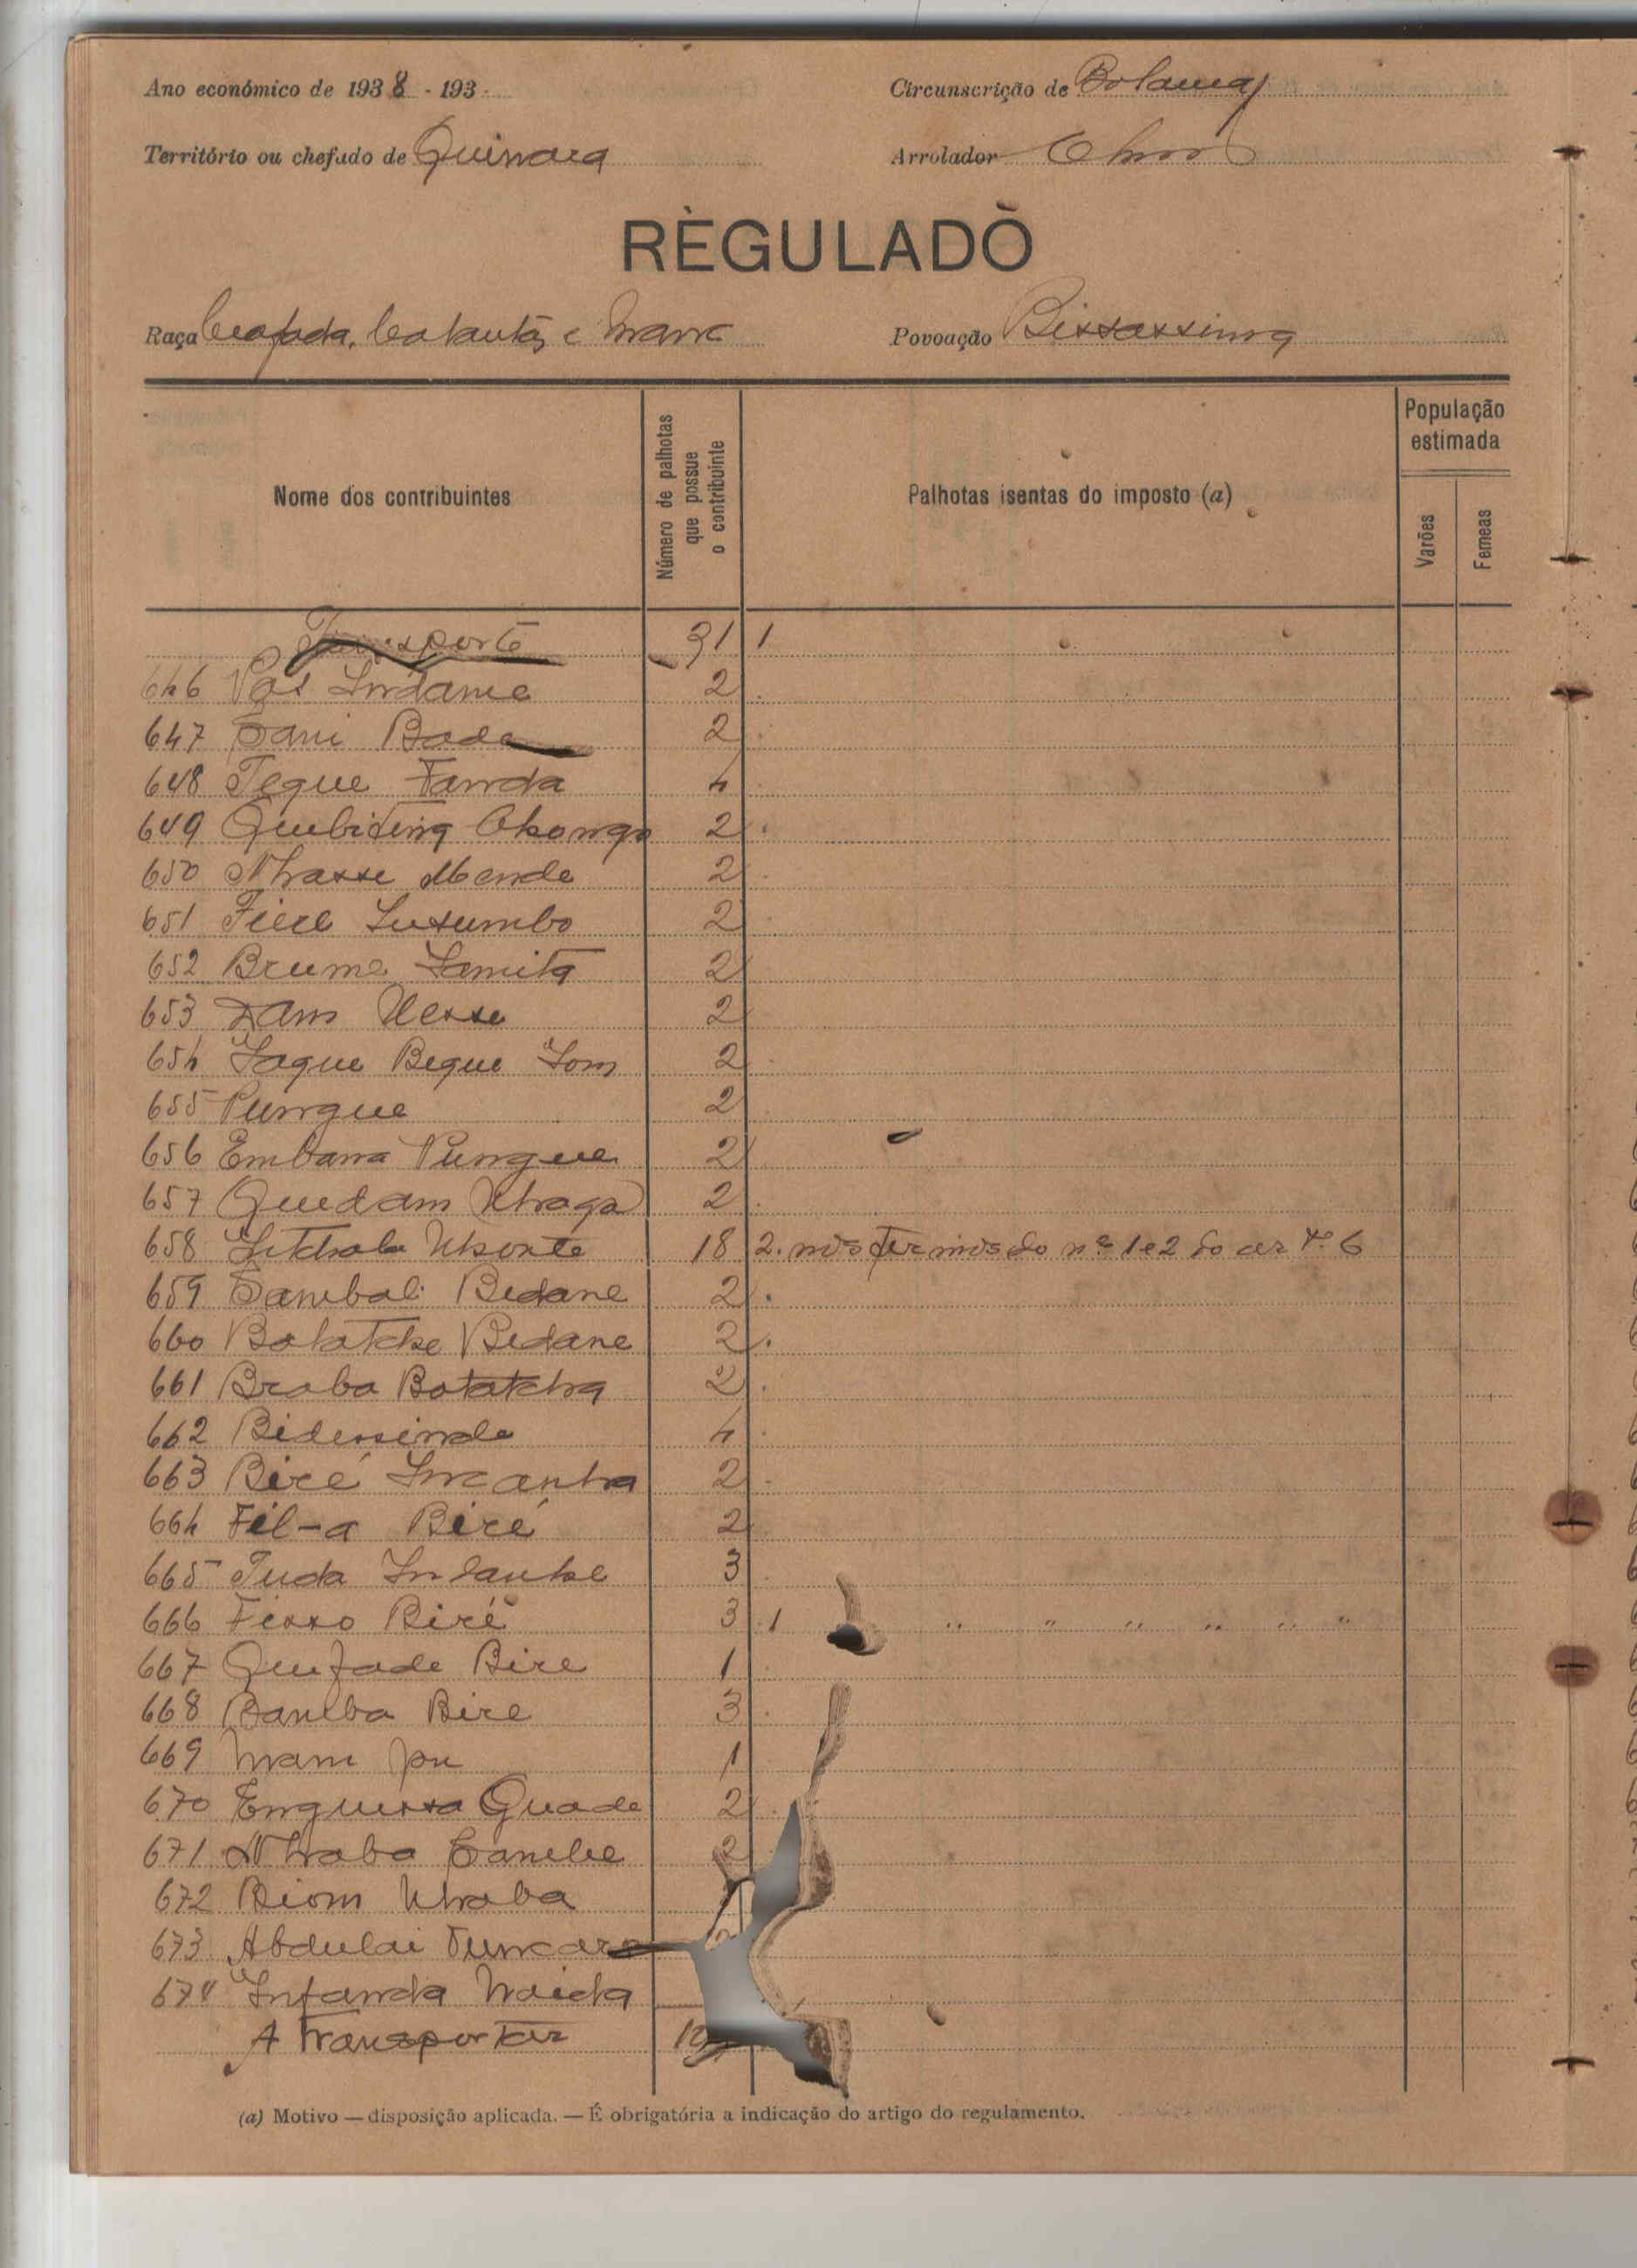 Ano económico de 1938 - 193
Circunscrição de Bolama
Território ou chefado de Quinara
Arrolador
RÈGULADÒ
Raça Beafada, e
Povoação Bissassing
Nome dos contribuintes
Número de palhotas que possue o contribuinte
Palhotas isentas do imposto (a)
População estimada
Varões
Femeas
Transporte 31 1
646 Indame 2
647 Sani Bade 2
648 Tegue Fanda 4
649 2
650 Nhasse Mende 2
651 2
652 Brume 2
653 2
654 Iague Begue Iom 2
655 Pungue 2
656 Embana Pungue 2
657 Quedam Nhaga 2
658 18 2. nos termos do nº 1 e 2 do art.º 6
659 Sambali Bedane 2
660 Batatche Bedane 2
661 Braba Batatcha 2
662 4
663 Biré Incanha 2
664 Fil-a Biré 2
665 Tuda 3
666 Fisso Biré 3 1 " " " " " "
667 Quefade Bire 1
668 Bamba Bire 3
669 1
670 Quade 2
671 Nhaba 2
672 Biom Nhaba
673 Abdulai Tuncara 2
674 Infanda Naida
A Transportar
(a) Motivo — disposição aplicada. — É obrigatória a indicação do artigo do regulamento.